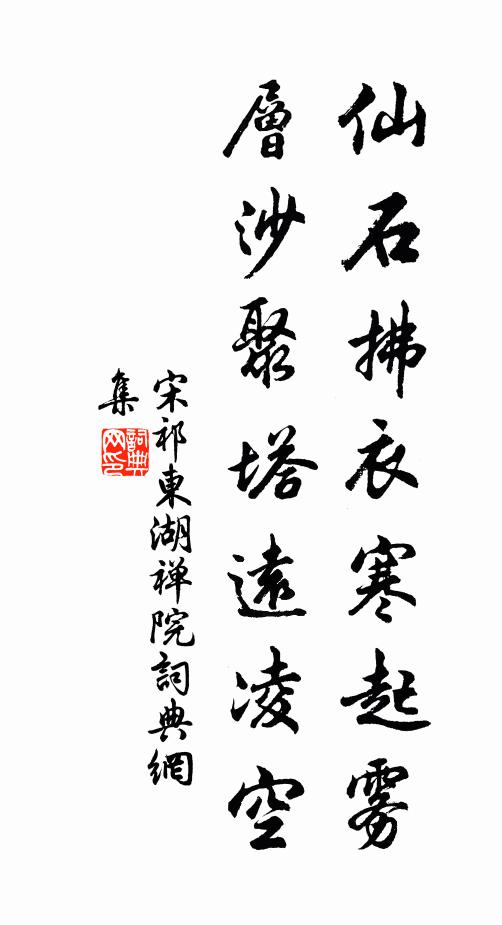 仙石拂衣寒起雾
層沙聚塔遠凌空
宋祁東湖禅院詞典網
集
詞典
网印